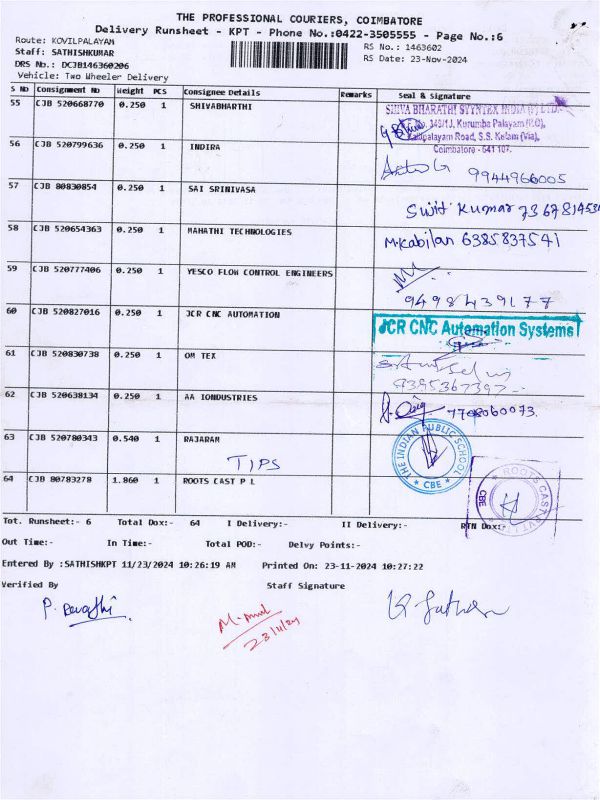 THE PROFESSIONAL COURIERS, COIMBATORE
Delivery Runsheet - KPT - Phone No.:0422-3505555 - Page No.:6
Route: KOVILPALAYAM
RS No.: 1463602
Staff: SATHISHKUMAR
RS Date: 23-Nov-2024
DRS No.: DCJB146360206
Vehicle: Two Wheeler Delivery
S No Consignment No Weight PCS Consignee Details Remarks Seal & Signature
55 CJB 520668770 0.250 1 SHIVABHARTHI
SHIVA BHARATHI SYYNTEX INDIA (P) LTD.
349/1J, Kurumba Palayam (P.O),
Kalipalayam Road, S.S. Kulam (Via),
Coimbatore - 641 107.
56 CJB 520799636 0.250 1 INDIRA
9944966005
57 CJB 80830854 0.250 1 SAI SRINIVASA
Kumar
58 CJB 520654363 0.250 1 MAHATHI TECHNOLOGIES
M.Kabilan 6385837541
59 CJB 520777406 0.250 1 YESCO FLOW CONTROL ENGINEERS
9498439177
60 CJB 520827016 0.250 1 JCR CNC AUTOMATION
JCR CNC Automation Systems
61 CJB 520830738 0.250 1 OM TEX
9395367397
62 CJB 520638134 0.250 1 AA IONDUSTRIES
7708060073
63 CJB 520780343 0.540 1 RAJARAM
TIPS
THE INDIAN PUBLIC SCHOOL
CBE
64 CJB 80783278 1.860 1 ROOTS CAST P L
ROOTS CAST PVT LTD
CBE
Tot. Runsheet:- 6 Total Dox:- 64 I Delivery:- II Delivery:- RTN Dox:-
Out Time:- In Time:- Total POD:- Delvy Points:-
Entered By :SATHISHKPT 11/23/2024 10:26:19 AM Printed On: 23-11-2024 10:27:22
Verified By Staff Signature
P. Revathi
23/11/24